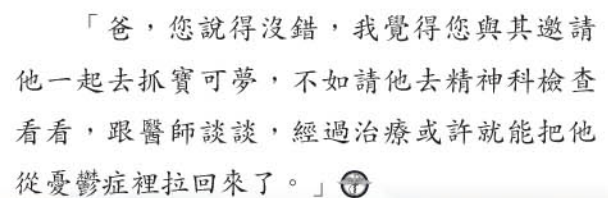 「爸，您說得沒錯，我覺得您與其邀請
他一起去抓寶可夢，不如請他去精神科檢查
看看，跟醫師談談，經過治療或許就能把他
從憂鬱症裡拉回來了。」